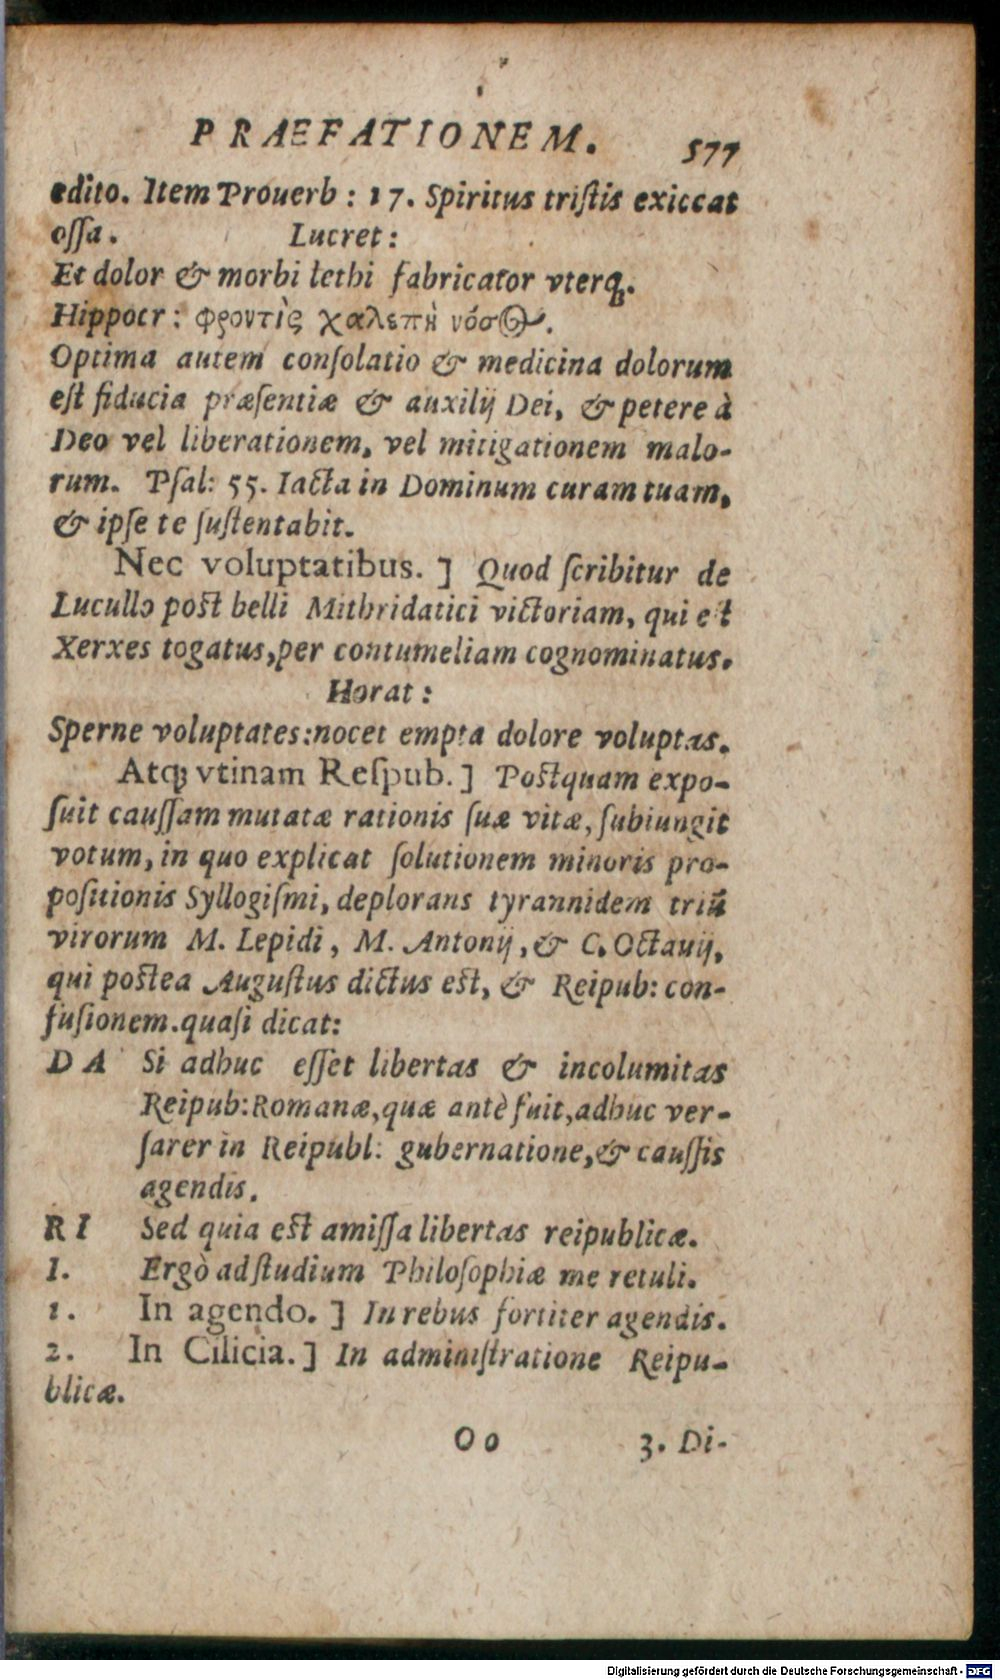 PRAEFATIONEM. 577
edito. Item Prouerb: 17. Spiritus triſtis exiccat
oſſa. Lucret:
Et dolor & morbi lethi fabricator vterq́ꝫ.
Hippocr: φροντὶς χαλεπὴ νόσος.
Optima autem conſolatio & medicina dolorum
eſt fiducia præſentiæ & auxilij Dei, & petere à
Deo vel liberationem, vel mitigationem malo-
rum. Pſal: 55. Iacta in Dominum curam tuam,
& ipſe te ſuſtentabit.
Nec voluptatibus. ] Quod ſcribitur de
Lucullo poſt belli Mithridatici victoriam, qui eſt
Xerxes togatus, per contumeliam cognominatus.
Horat:
Sperne voluptates: nocet empta dolore voluptas.
Atqꝫ vtinam Reſpub. ] Poſtquam expo-
ſuit cauſſam mutatæ rationis ſuæ vitæ, ſubiungit
votum, in quo explicat ſolutionem minoris pro-
poſitionis Syllogiſmi, deplorans tyrannidem triū
virorum M. Lepidi, M. Antonij, & C. Octauij,
qui poſtea Auguſtus dictus eſt, & Reipub: con-
fuſionem. quaſi dicat:
DA Si adhuc eſſet libertas & incolumitas
Reipub: Romanæ, quæ antè fuit, adhuc ver-
ſarer in Reipubl: gubernatione, & cauſſis
agendis.
RI Sed quia eſt amiſſa libertas reipublicæ.
I. Ergò ad ſtudium Philoſophiæ me retuli.
1. In agendo. ] In rebus fortiter agendis.
2. In Cilicia. ] In adminiſtratione Reipu-
blicæ.
Oo 3. Di-
Digitalisierung gefördert durch die Deutsche Forschungsgemeinschaft - DFG